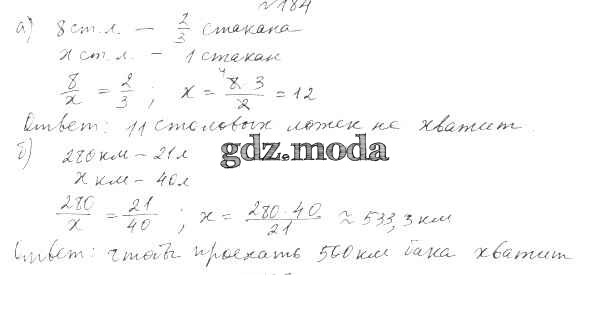 №184
а) 8 ст. л. — 2/3 стакана
x ст. л. — 1 стакан
8/x = 2/3 ; x = 8·3/2 = 12
Ответ: 11 столовых ложек не хватит.
б) 280 км — 21 л
gdz.moda
x км — 40 л
280/x = 21/40 ; x = 280·40/21 ≈ 533,3 км
Ответ: чтобы проехать 500 км бака хватит